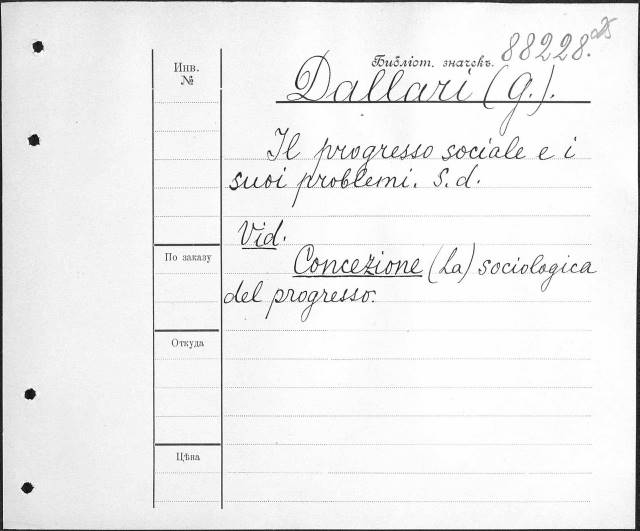 88228.
Инв.
№
Библіот. значекъ.
Dallari (G.).
Il progresso sociale e i
suoi problemi. S. d.
Vid.
По заказу
Concezione (La) sociologica
del progresso.
Откуда
Цѣна